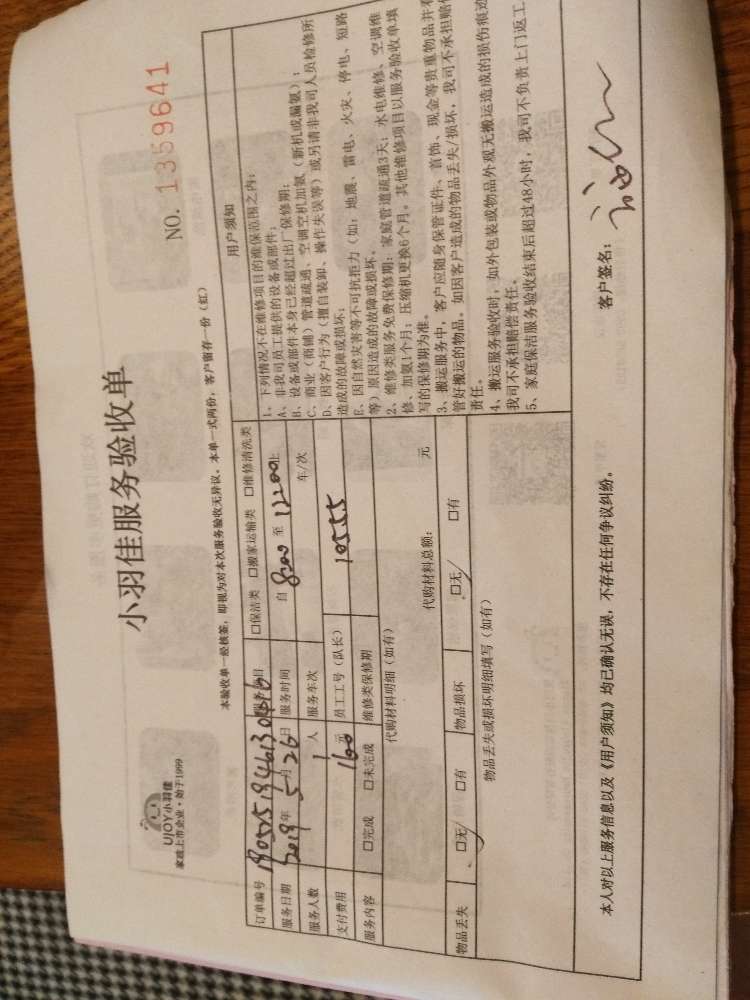 NO. 1359641
UJOY小羽佳
家政上市企业·始于1999
小羽佳服务验收单
本验收单一经核签，即视为对本次服务验收无异议。本单一式两份，客户留存一份（红）
订单编号 服务项目 □保洁类 □搬家运输类 □维修清洗类
服务日期 2019年 5月 26日 服务时间 自 8:00 至 12:00止
服务人数 1人 服务车次 车/次
支付费用 160元 员工工号（队长） 10555
服务内容 □完成 □未完成 维修类保修期
代购材料明细（如有）
代购材料总额： 元
物品丢失 □无 □有 物品损坏 □无 □有
物品丢失或损坏明细填写（如有）
用户须知
1、下列情况不在维修项目的维保范围之内：
A、非我司员工提供的设备或部件；
B、设备或部件本身已经超过出厂保修期；
C、商业（商铺）管道疏通、空调空机加氨（新机或漏氨）；
D、因客户行为（擅自装卸、操作失误等）或另请非我司人员检修所
造成的故障或损坏；
E、因自然灾害等不可抗拒力（如：地震、雷电、火灾、停电、短路
等）原因造成的故障或损坏。
2、维修类服务免费保修期：家庭管道疏通3天；水电维修、空调维
修、加氨1个月；压缩机更换6个月。其他维修项目以服务验收单填
写的保修期为准。
3、搬运服务中，客户应随身保管证件、首饰、现金等贵重物品并
管好搬运的物品。如因客户造成的物品丢失/损坏，我司不承担赔偿
责任。
4、搬运服务验收时，如外包装或物品外观无搬运造成的损伤痕迹
我司不承担赔偿责任。
5、家庭保洁服务验收结束后超过48小时，我司不负责上门返工
本人对以上服务信息以及《用户须知》均已确认无误，不存在任何争议纠纷。
客户签名：